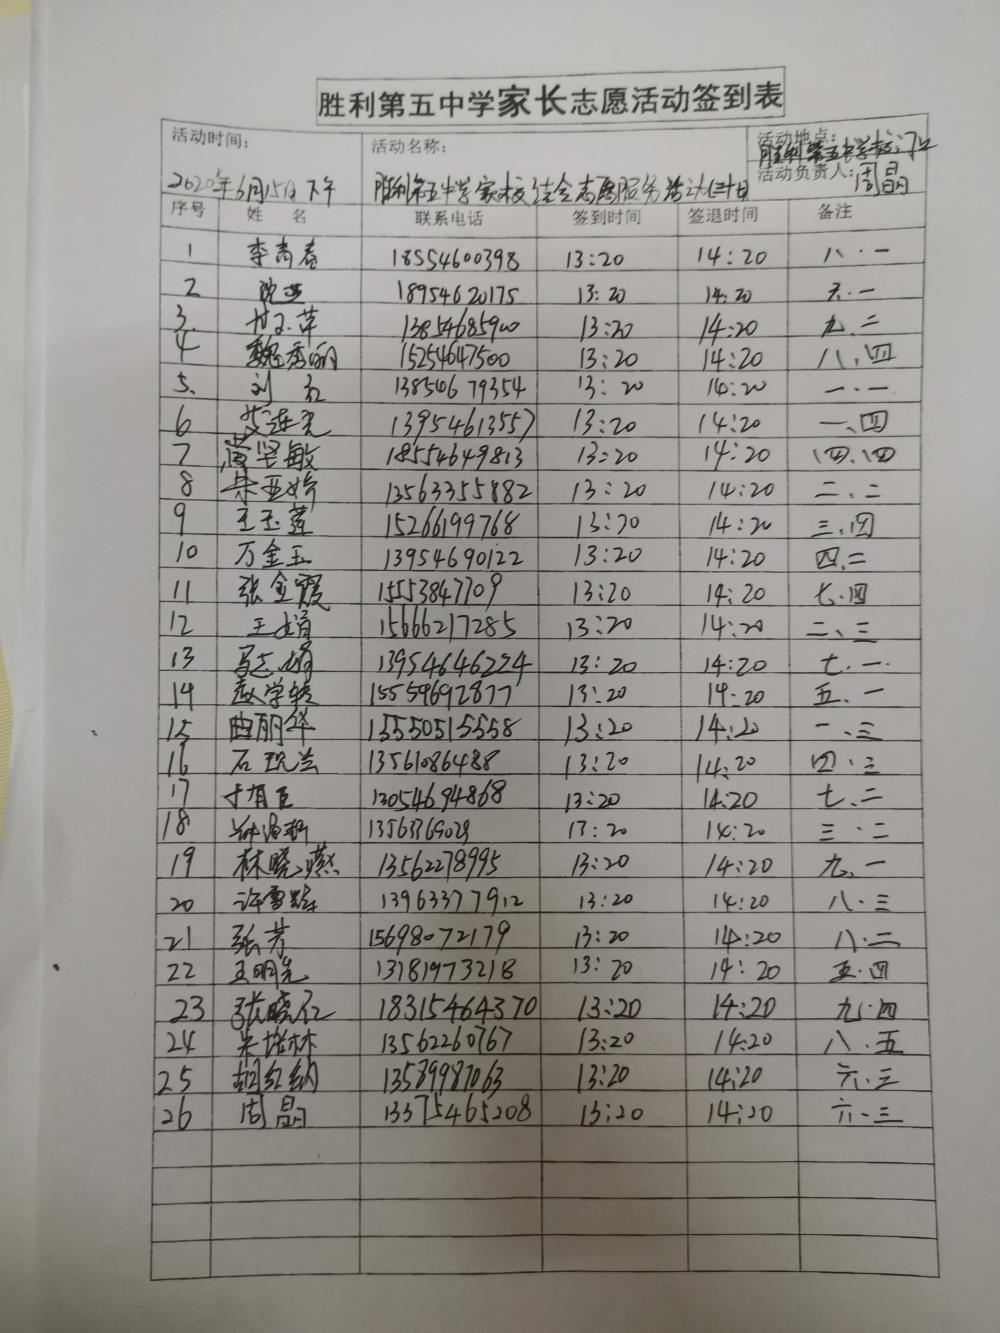 胜利第五中学家长志愿活动签到表
活动时间： 活动名称： 活动地点：胜利第五中学校门口
2020年6月15日下午 胜利第五中学家校结合志愿服务活动 活动负责人：周晶
序号 姓名 联系电话 签到时间 签退时间 备注
1 李青春 18554600398 13:20 14:20 八.一
2 18954620175 13:20 14:20 六.一
3. 13854685900 13:20 14:20 九.二
4 魏秀丽 15254647500 13:20 14:20 八.四
5. 刘 13850679354 13:20 14:20 一.一
6 13954613557 13:20 14:20 一、四
7 敏 18554649813 13:20 14:20 四.四
8 亚婷 13563355882 13:20 14:20 二、二
9 王玉莲 15266199768 13:20 14:20 三.四
10 万金玉 13954690122 13:20 14:20 四.二
11 张金霞 15553847709 13:20 14:20 七.四
12 王娟 15666217285 13:20 14:20 二、三
13 马志娟 13954646224 13:20 14:20 七.一
14 赵学 15559692877 13:20 14:20 五.一
15 曲丽华 15550515558 13:20 14:20 一.三
16 石现兰 13561086488 13:20 14:20 四.三
17 于有臣 13054694868 13:20 14:20 七.二
18 13563769029 13:20 14:20 三.二
19 林晓燕 13562278995 13:20 14:20 九.一
20 许雪 13963377912 13:20 14:20 八.三
21 张芳 15698072179 13:20 14:20 八.二
22 王明先 13181973218 13:20 14:20 五.四
23 张晓红 18315464370 13:20 14:20 九.四
24 林 13562260767 13:20 14:20 八.五
25 胡红纳 13589987063 13:20 14:20 六.三
26 周晶 13375465208 13:20 14:20 六.三